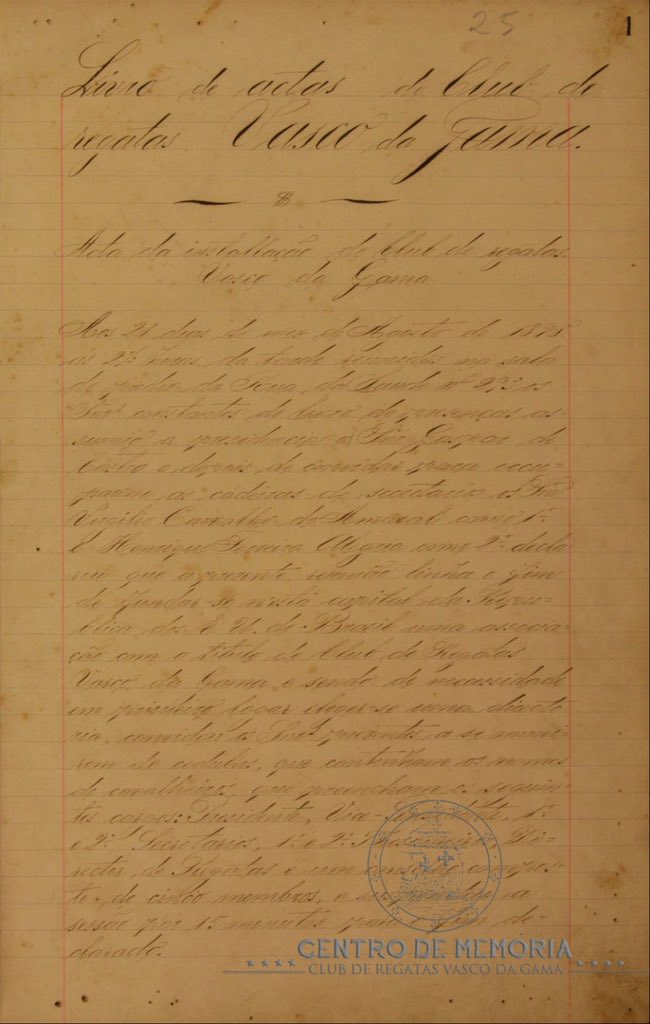 25
1
Livro de actas do Club de
regatas Vasco da Gama.
Acta da installação do Club de regatas
Vasco da Gama
Aos 21 dias do mez de Agosto de 1898
ás 2½ horas da tarde reunidos na sala
do predio da Rua da Saude nº 293 os
Snrs constantes do livro de presenças as-
sumiu a presidencia o Snr Gaspar de
Castro e depois de convidar para occu-
parem as cadeiras de secretarios os Snrs
Virgilio Carvalho do Amaral como 1º
e Henrique Ferreira Alegria como 2º decla-
rou que a presente reunião tinha o fim
de fundar-se nesta capital da Repu-
blica dos E. U. do Brasil uma associa-
ção com o titulo de Club de Regatas
Vasco da Gama e sendo de necessidade
em primeiro logar eleger-se uma directo-
ria, convidou os Snrs presentes a se muni-
rem de cedulas, que contenham os nomes
de cavalheiros que preencham os seguin-
tes cargos: Presidente, Vice-Presidente, 1º
e 2º Secretarios, 1º e 2º Thesoureiros, Di-
rector de Regatas e um conselho compos-
to de cinco membros, e suspendeu a
sessão por 15 minutos para o fim de-
clarado.
CENTRO DE MEMÓRIA
CLUB DE REGATAS VASCO DA GAMA